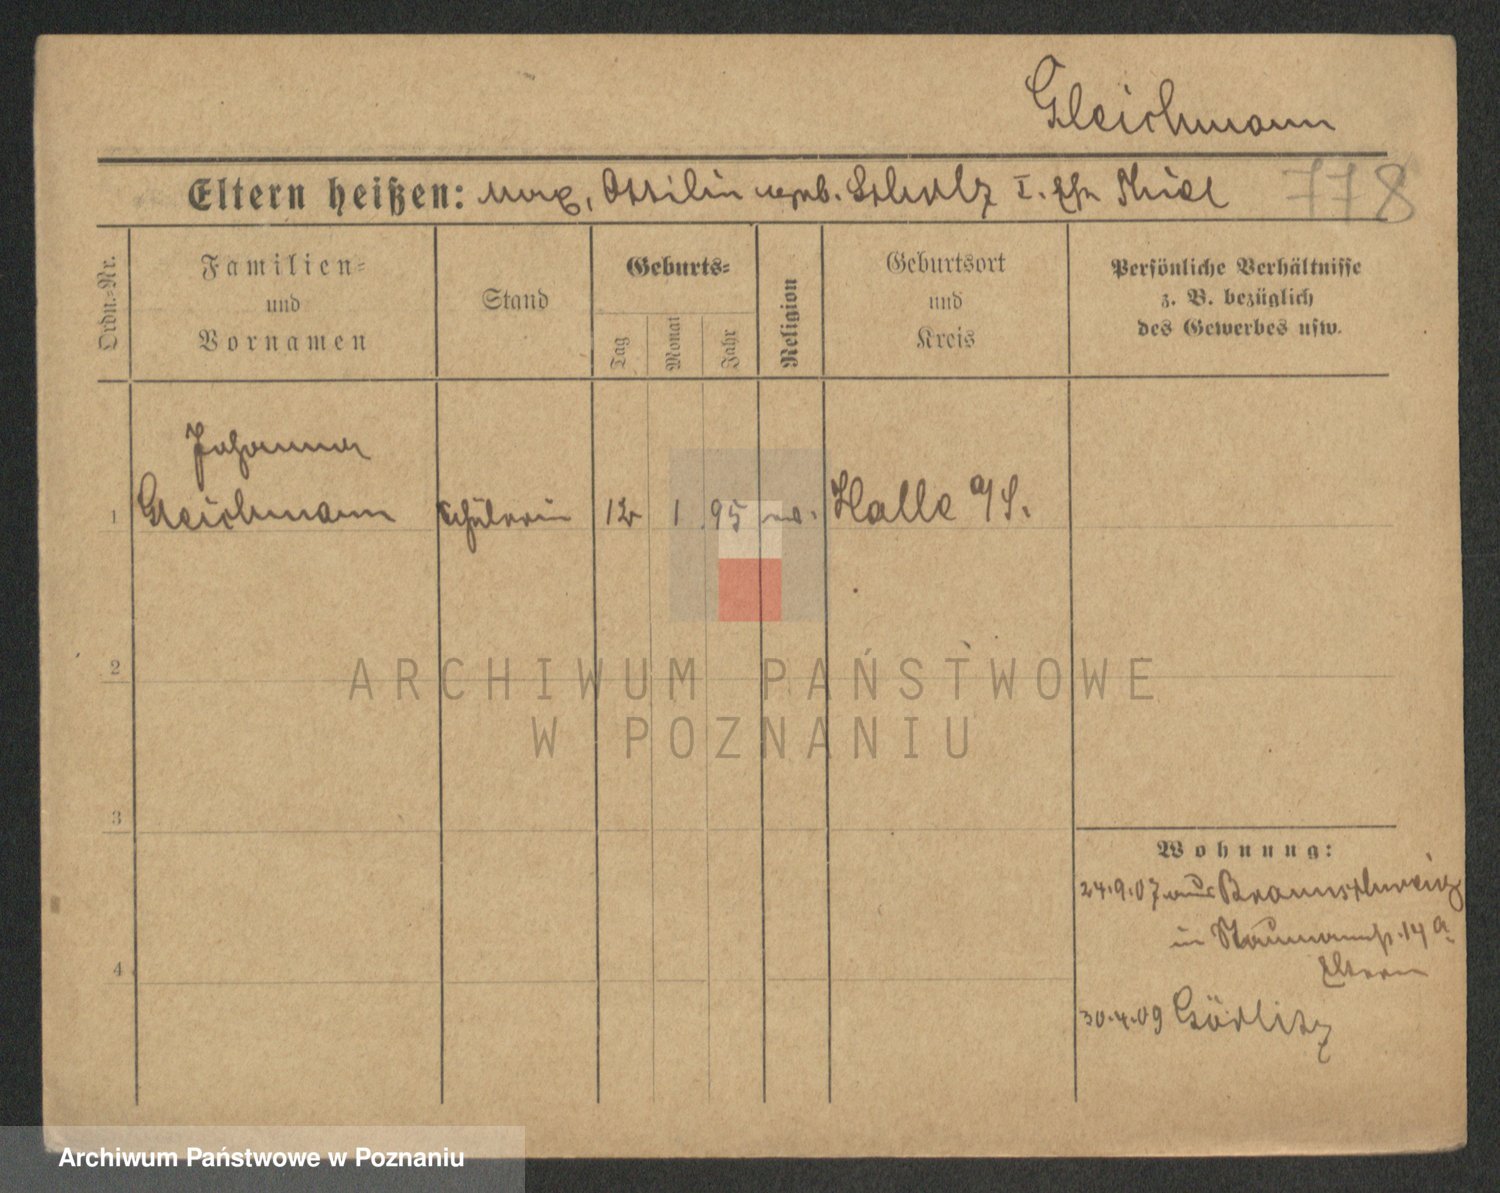 Gleichmann
Eltern heißen: Max, Ottilin geb. Scholz I. Ehe Thiel 778
Ordn.-Nr.
Familien-
und
Vornamen
Stand
Geburts-
Tag
Monat
Jahr
Religion
Geburtsort
und
Kreis
Persönliche Verhältnisse
z. B. bezüglich
des Gewerbes usw.
Johanna
1 Gleichmann Schülerin 12 1 95 ev. Halle a/S.
2
3
4
Wohnung:
24.9.07 aus Braunschweig
in 14a
Eltern
30.4.09 Görlitz
ARCHIWUM PAŃSTWOWE
W POZNANIU
Archiwum Państwowe w Poznaniu